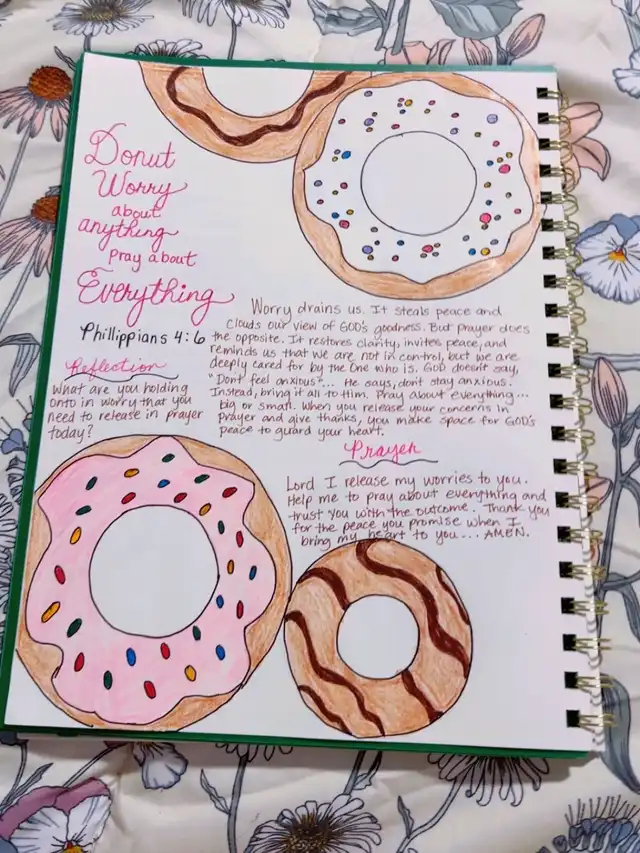 Donut
Worry
about
anything
pray about
Everything
Phillippians 4:6
Reflection
What are you holding
onto in worry that you
need to release in prayer
today?
Worry drains us. It steals peace and
clouds our view of GOD's goodness. But prayer does
the opposite. It restores clarity, invites peace, and
reminds us that we are not in control, but we are
deeply cared for by the One who is. GOD doesn't say,
"Don't feel anxious"... He says, don't stay anxious.
Instead, bring it all to Him. Pray about everything...
big or small. When you release your concerns in
Prayer and give thanks, you make space for GOD's
peace to guard your heart.
Prayer
Lord I release my worries to you.
Help me to pray about everything and
trust you with the outcome. Thank you
for the peace you promise when I
bring my heart to you... AMEN.